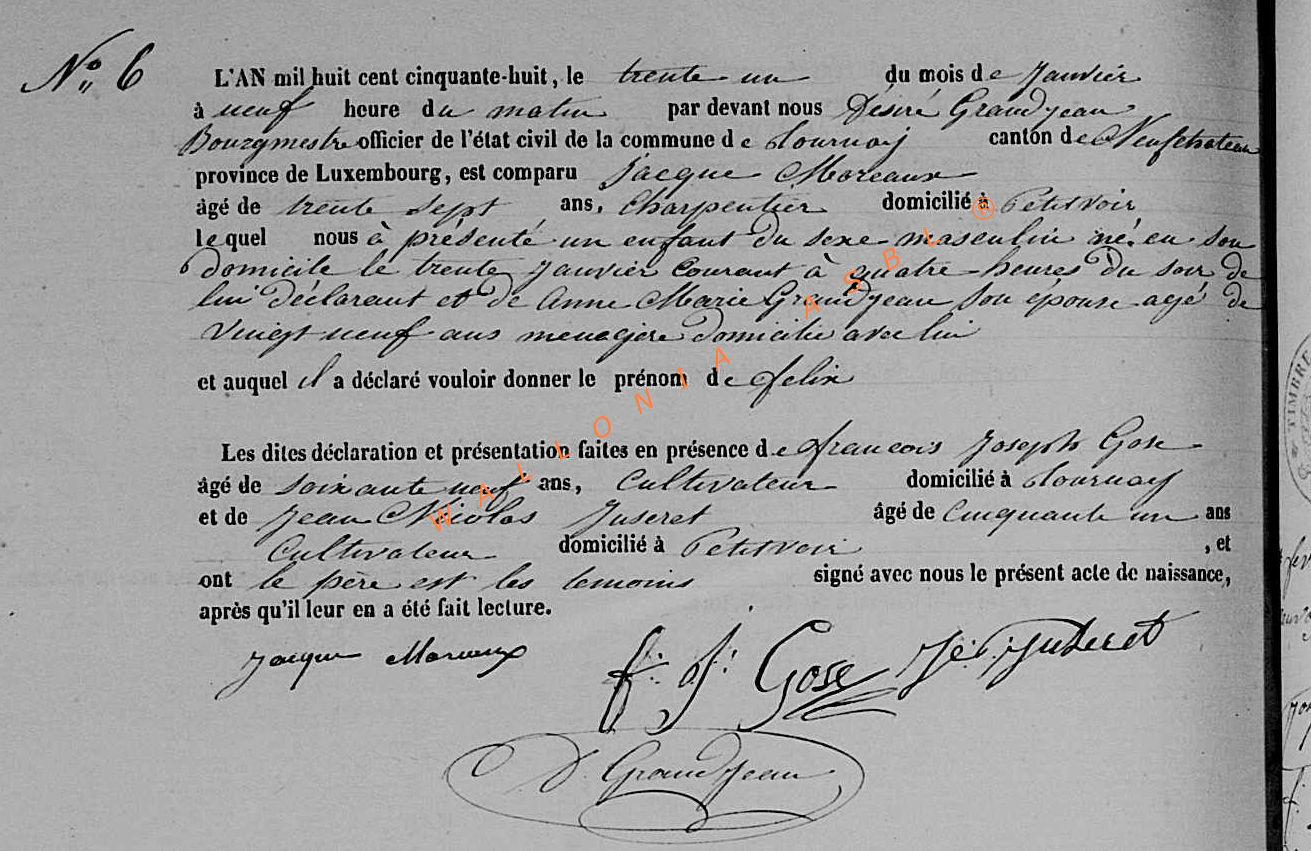 N° 6
L'AN mil huit cent cinquante-huit, le trente un du mois de Janvier
à neuf heure du matin par devant nous Désiré Grandjean
Bourgmestre officier de l'état civil de la commune de tournay canton de Neufchateau
province de Luxembourg, est comparu Jacque Moreaux
âgé de trente sept ans, Charpentier domicilié à Petitvoir
lequel nous à présenté un enfant du sexe masculin né en son
domicile le trente Janvier Courant à quatre heures du soir de
lui déclarant et de Anne Marie Grandjean son épouse agé de
Veingt neuf ans menagère domicilie avec lui
et auquel il a déclaré vouloir donner le prénom de felix
Les dites déclaration et présentation faites en présence de francois Joseph Gose
âgé de soixante neuf ans, Cultivateur domicilié à tournay
et de Jean Nicolas Juseret âgé de Cinquante un ans
Cultivateur domicilié à Petitvoir , et
ont le père est les temoins signé avec nous le présent acte de naissance,
après qu'il leur en a été fait lecture.
Jacque Moreaux
f: J: Gose J: N: Juseret
D. Grandjean
WALLONIA ASBL ®
TIMBRE